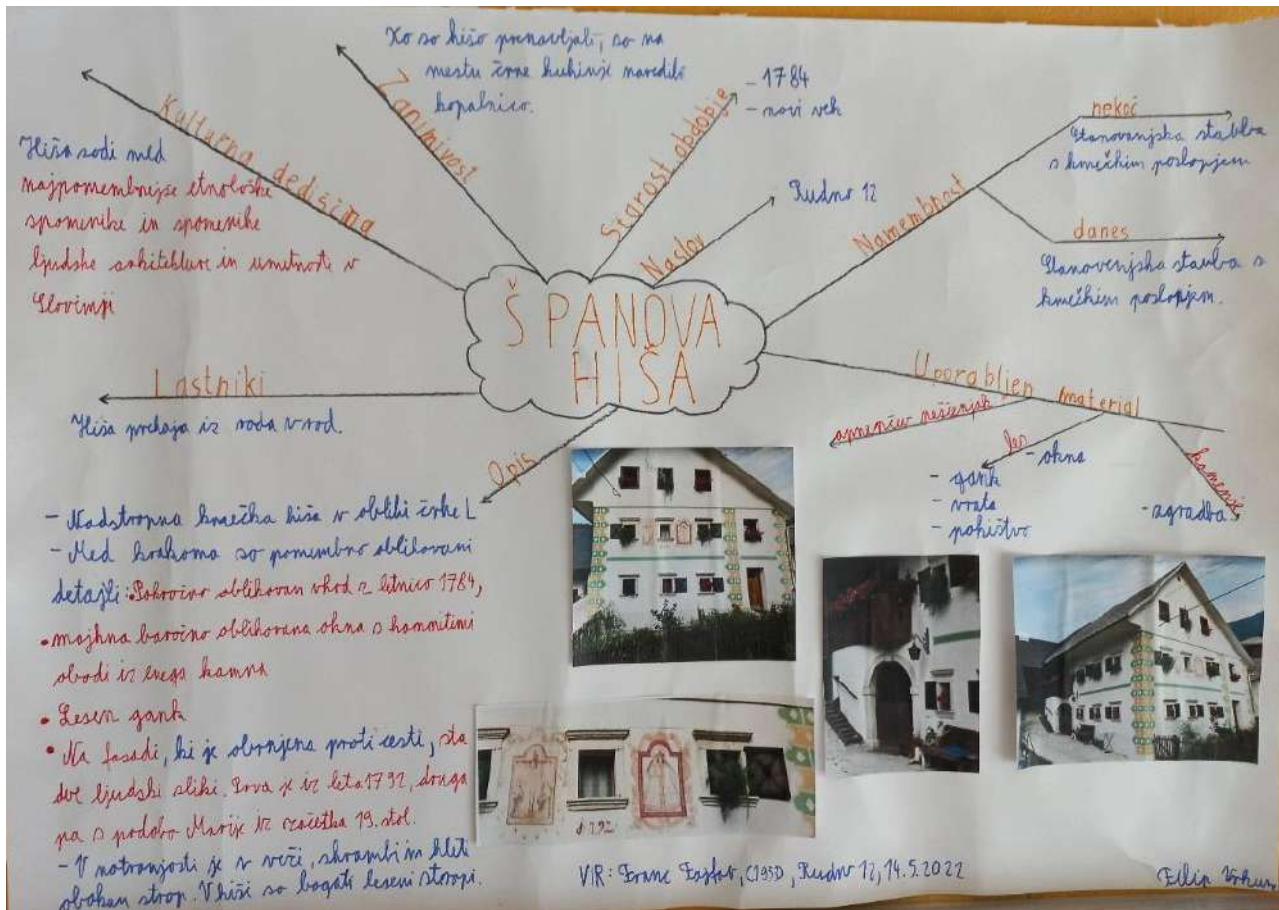 ŠPANOVA
HIŠA
Kulturna dediščina
Hiša sodi med
najpomembnejše etnološke
spomenike in spomenike
ljudske arhitekture in umetnosti v
Sloveniji
Zanimivost
Ko so hišo prenavljali, so na
mestu črne kuhinje naredili
kopalnico.
Starost obdobje
- 1784
- novi vek
Naslov
Rudno 12
Namembnost
nekoč
Stanovanjska stavba
s kmečkim poslopjem
danes
Stanovanjska stavba s
kmečkim poslopjem.
Uporabljen material
les
- okna
- gank
- vrata
- pohištvo
kamenje
- zgradba
Lastniki
Hiša prehaja iz roda v rod.
Opis
- Nadstropna kmečka hiša v obliki črke L
- Med krakoma so pomembno oblikovani
detajli: oblikovan vhod z letnico 1784,
• majhna baročno oblikovana okna s kamnitimi
obodi iz enega kamna
• Lesen gank
• Na fasadi, ki je obrnjena proti cesti, sta
dve ljudski sliki. Prva je iz leta 1792, druga
pa s podobo Marije iz začetka 19. stol.
- V notranjosti je v veži, shrambi in kleti
obokan strop. V hiši so bogati leseni stropi.
VIR: Franc, Rudno 12, 14.5.2022
Filip